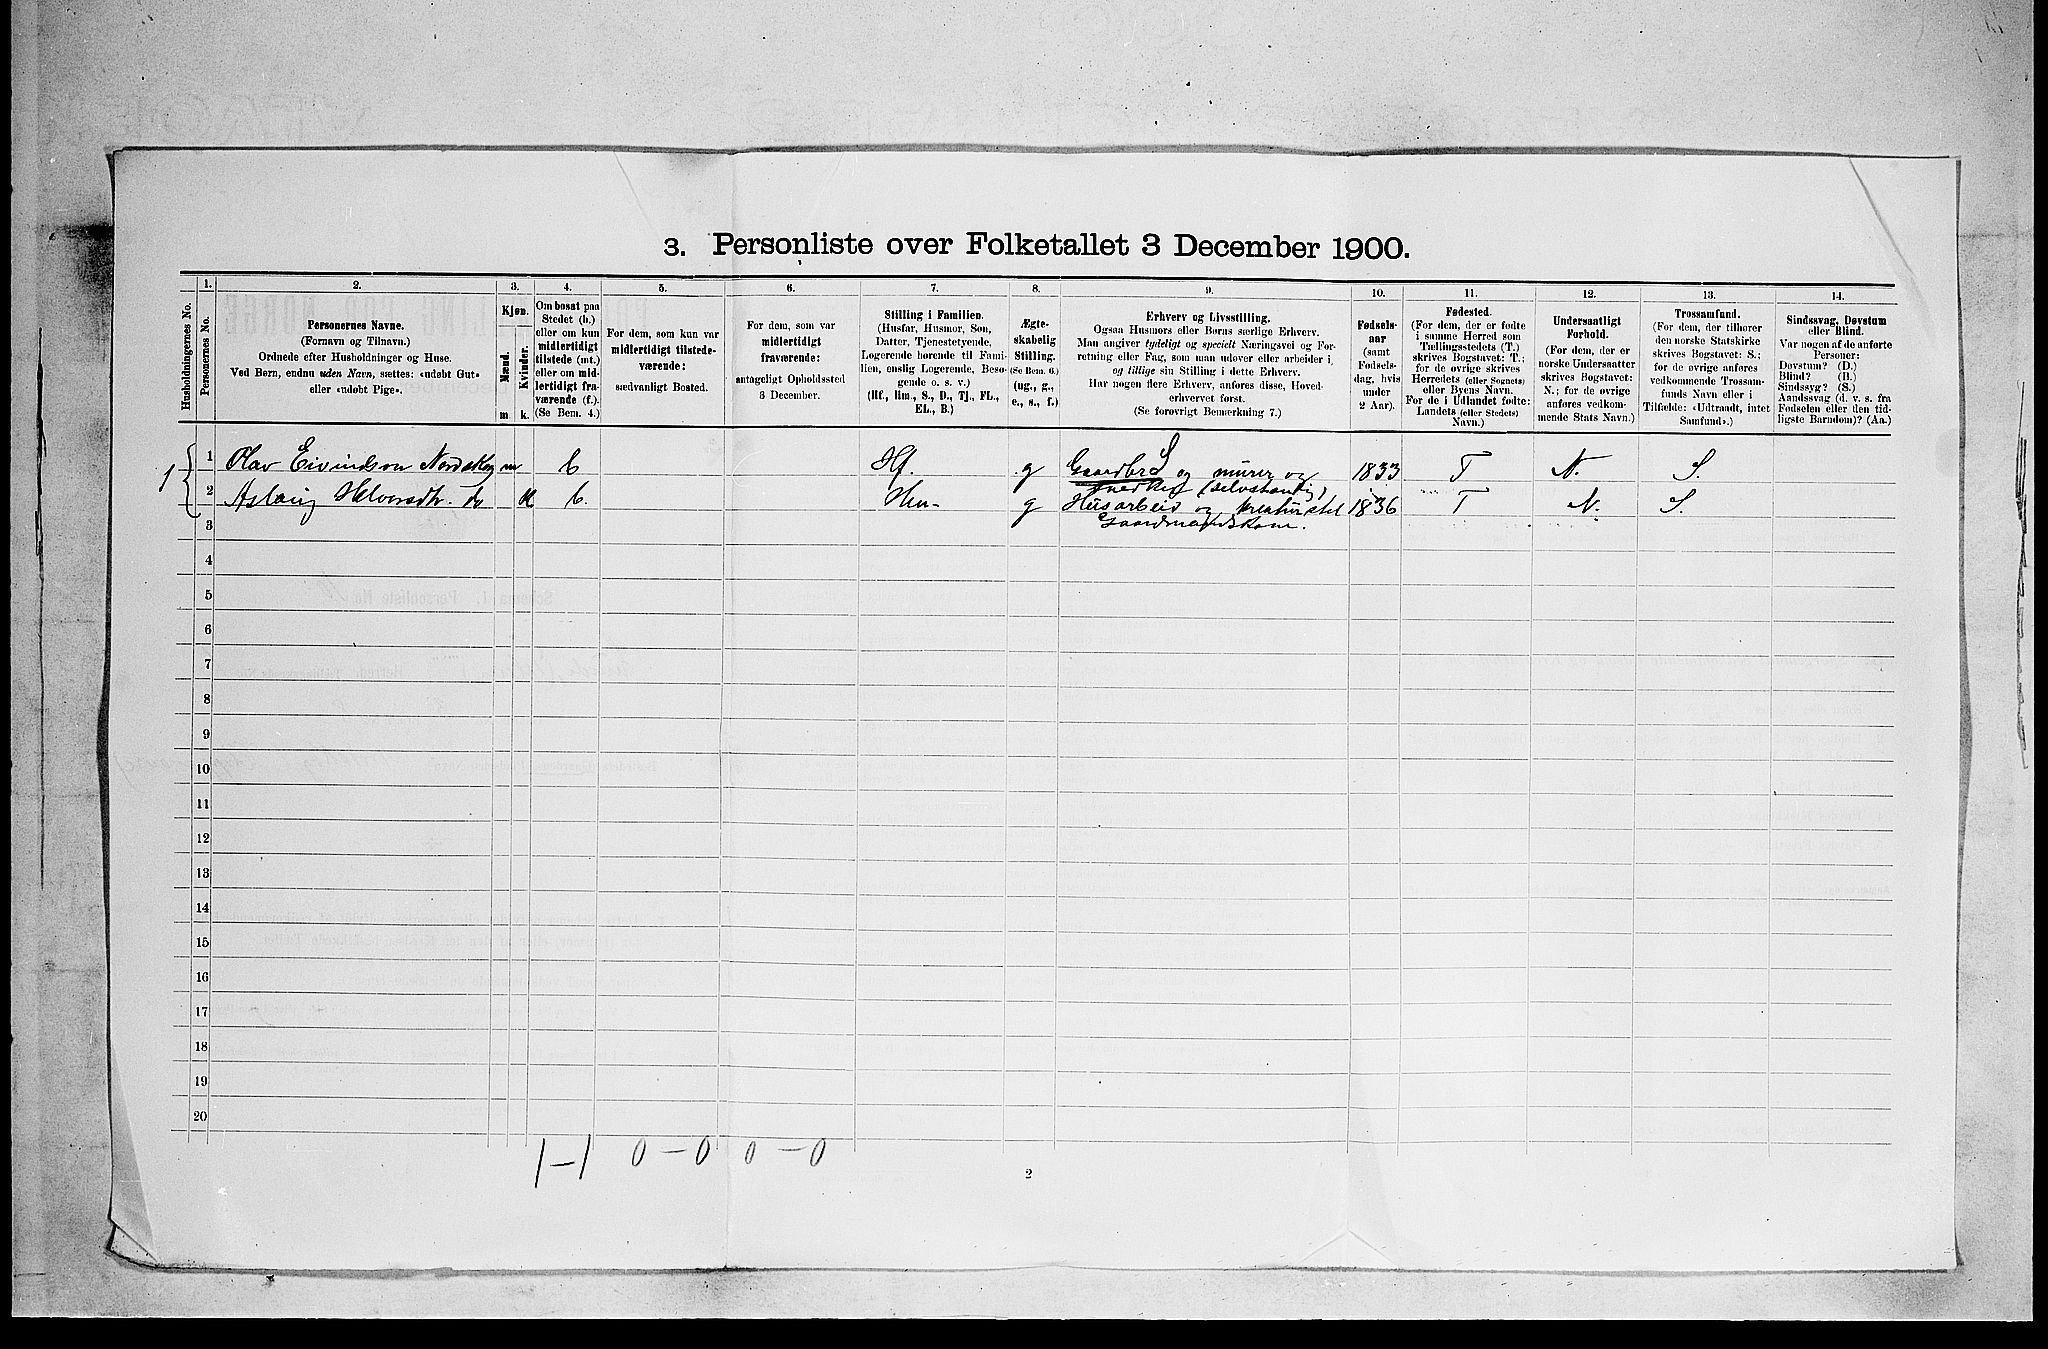 3. Personliste over Folketallet 3 December 1900.
1. 2. 3. 4. 5. 6. 7. 8. 9. 10. 11. 12. 13. 14.
Husholdningernes No.
Personernes No.
Personernes Navne.
(Fornavn og Tilnavn.)
Ordnede efter Husholdninger og Huse.
Ved Børn, endnu uden Navn, sættes: «udøbt Gut»
eller «udøbt Pige».
Kjøn.
Mænd.
Kvinder.
m. k.
Om bosat paa
Stedet (b.)
eller om kun
midlertidigt
tilstede (mt.)
eller om mid-
lertidigt fra-
værende (f.).
(Se Bem. 4.)
For dem, som kun var
midlertidigt tilstede-
værende:
sædvanligt Bosted.
For dem, som var
midlertidigt
fraværende:
antageligt Opholdssted
3 December.
Stilling i Familien.
(Husfar, Husmor, Søn,
Datter, Tjenestetyende,
Logerende hørende til Fami-
lien, enslig Logerende, Besø-
gende o. s. v.)
(Hf., Hm., S., D., Tj., FL.,
EL., B.)
Ægte-
skabelig
Stilling.
(Se Bem. 6.)
(ug., g.,
e., s., f.)
Erhverv og Livsstilling.
Ogsaa Husmors eller Børns særlige Erhverv.
Man angiver tydeligt og specielt Næringsvei og For-
retning eller Fag, som man udover eller arbeider i,
og tillige sin Stilling i dette Erhverv.
Har nogen flere Erhverv, anføres disse, Hoved-
erhvervet først.
(Se forøvrigt Bemerkning 7.)
Fødsels-
aar
(samt
Fødsels-
dag, hvis
under
2 Aar).
Fødested.
(For dem, der er fødte
i samme Herred som
Tællingsstedets (T.)
skrives Bogstavet: T.;
for de øvrige skrives
Herredets (eller Sognets)
eller Byens Navn.
For de i Udlandet fødte:
Landets (eller Stedets)
Navn.)
Undersaatligt
Forhold.
(For dem, der er
norske Undersaatter
skrives Bogstavet:
N.; for de øvrige
anføres vedkom-
mende Stats Navn.)
Trossamfund.
(For dem, der tilhører
den norske Statskirke
skrives Bogstavet: S.;
for de øvrige anføres
vedkommende Trossam-
funds Navn eller i
Tilfælde: «Udtraadt, intet
Samfund».)
Sindssvag, Døvstum
eller Blind.
Var nogen af de anførte
Personer:
Døvstum? (D.)
Blind? (B.)
Sindssyg? (S.)
Aandssvag (d. v. s. fra
Fødselen eller den tid-
ligste Barndom)? (Aa.)
1 1 Olav Eivindson Nordskog m b Hf. g Gaardbr S og murer og snedker (selvstændig) 1833 T N. S.
2 Aslaug Halvorsdtr. do k b. Hm g Husarbeid og kreaturstel Gaardmandskone. 1836 T N. S.
3
4
5
6
7
8
9
10
11
12
13
14
15
16
17
18
19
20
1-1 0-0 0-0
2